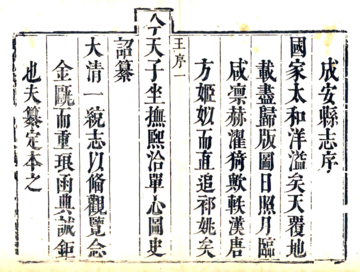 成安縣志序
國家太和洋溢矣天覆地
載盡歸版圖日照月臨
咸凛赫濯猗歟軼漢唐
方姬姒而直追祁姚矣
王序一
今天子坐撫熙洽單心圖史
詔纂
大清一統志以備觀覽念
金甌而重琅函典誠鉅
也夫纂定本之